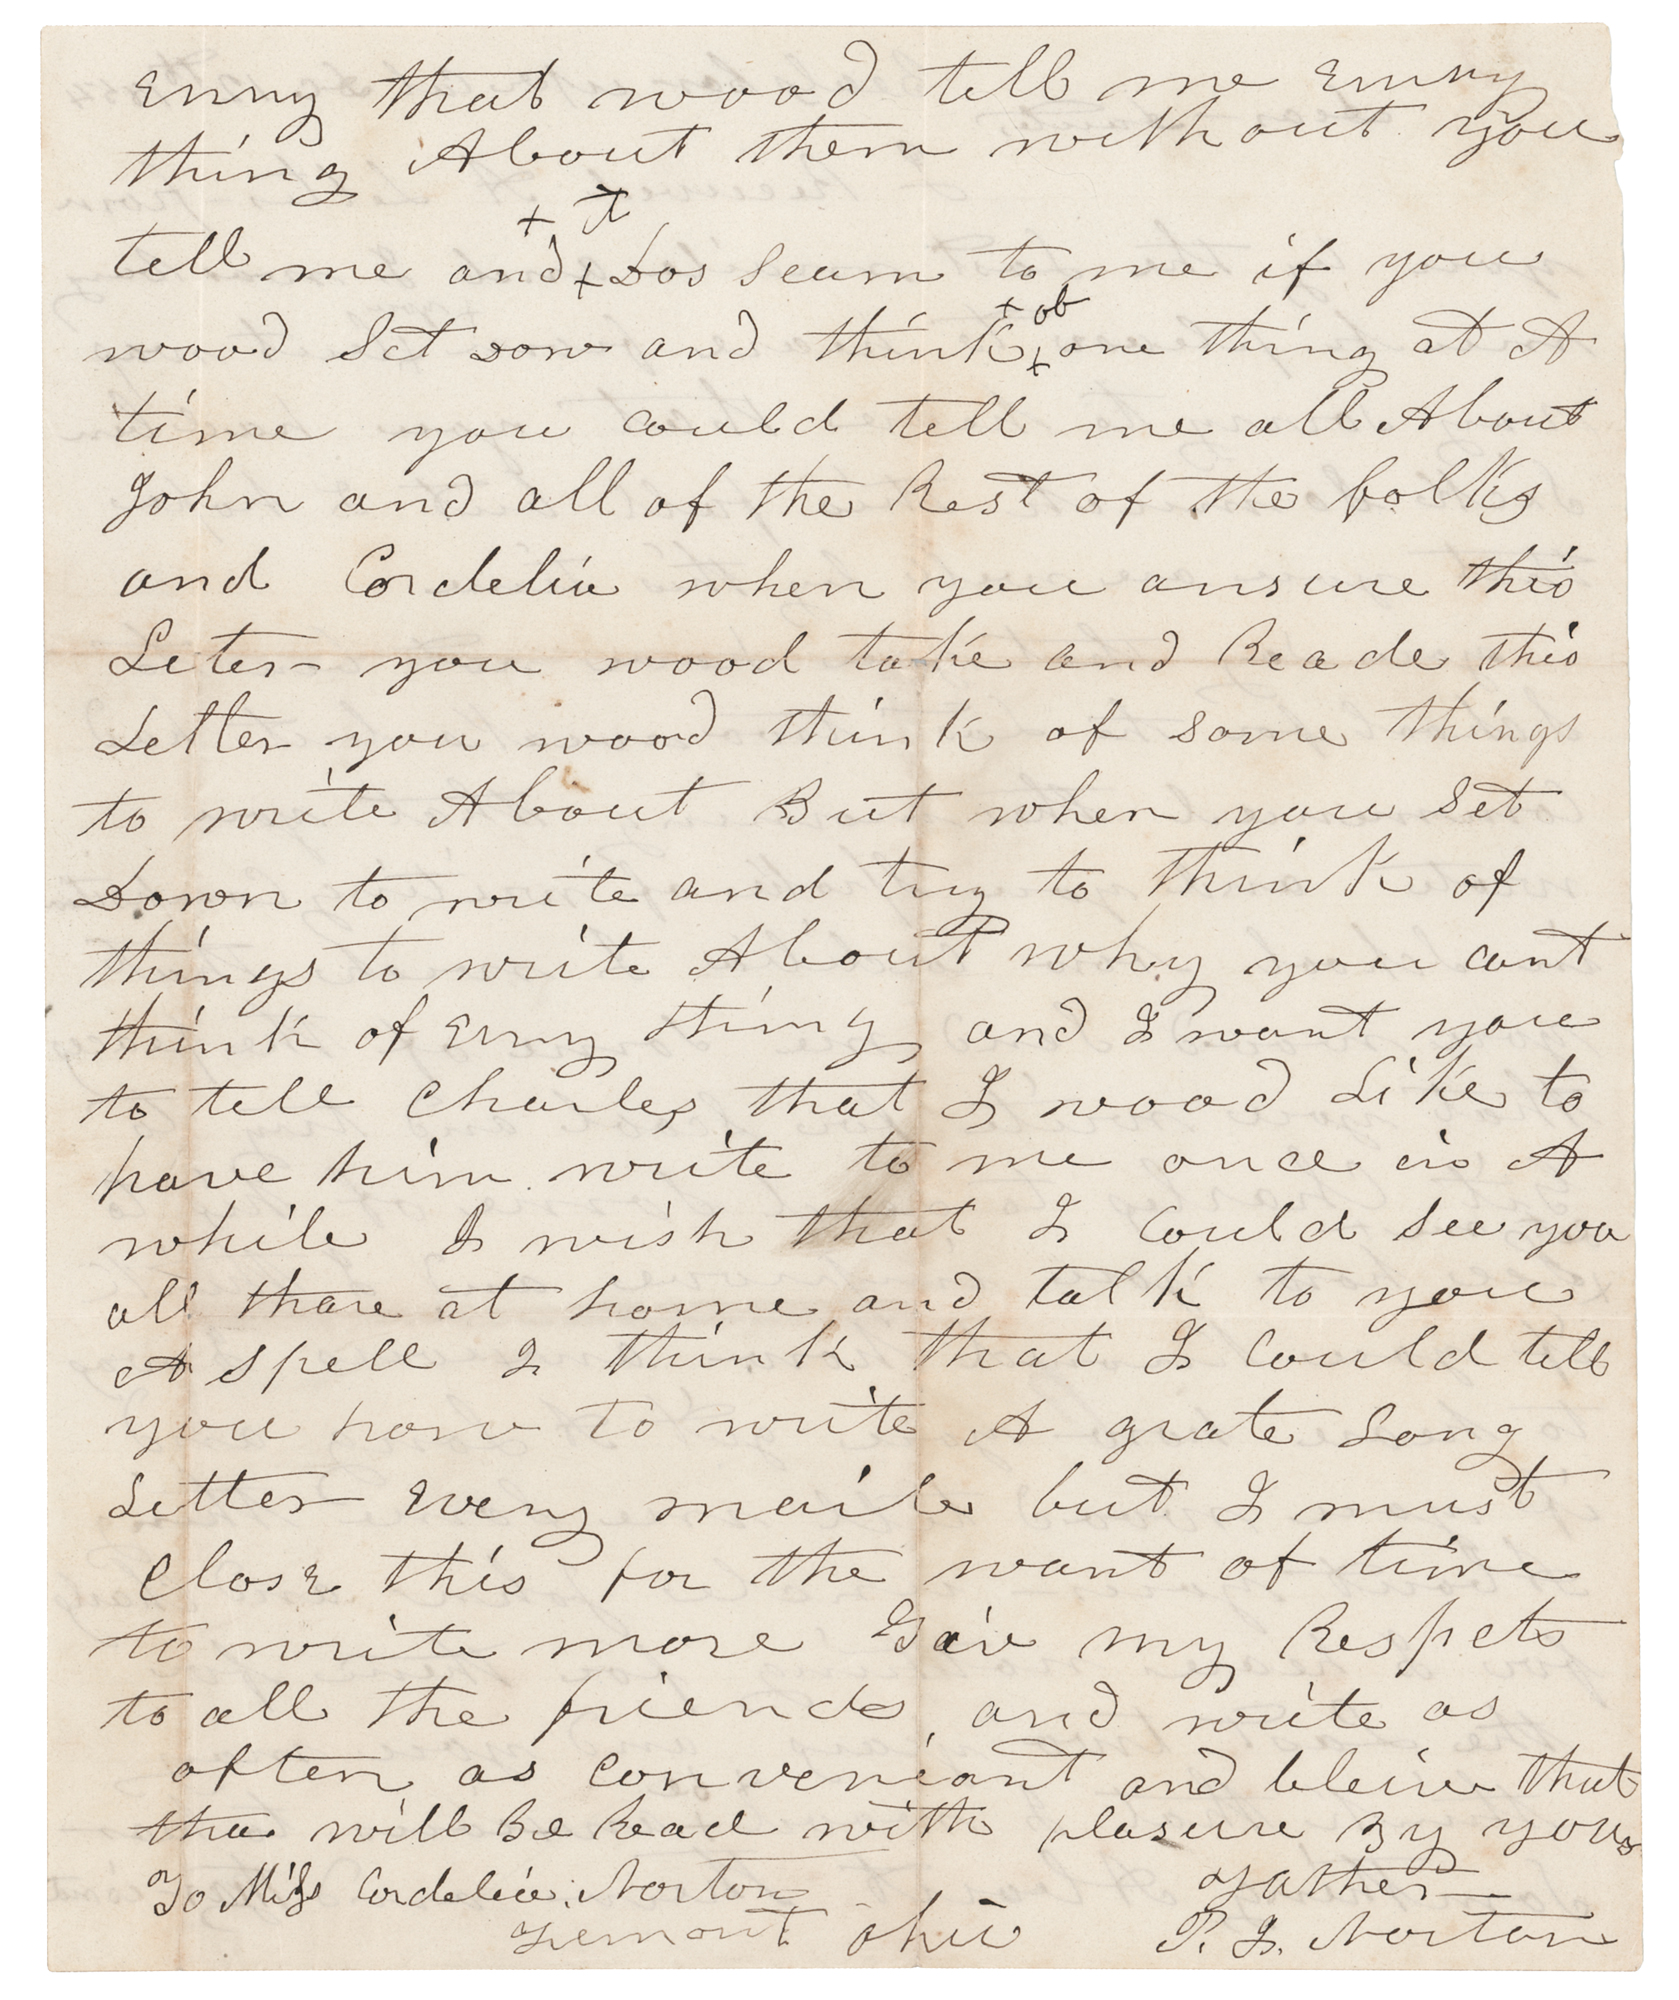 Enny that wood tell me Enny
thing About them without you
tell me and + it Dos Seam to me if you
wood Set Down and think + ob one thing at A
time you could tell me all About
John and all of the Rest of the folks
and Cordelia when you ansure this
Leter you wood take and Reade this
Letter you wood think of some things
to write About But when you Set
Down to write and try to think of
things to write About why you cant
think of Enny thing and I want you
to tell Charles that I wood Like to
have him write to me once in A
while I wish that I Could See you
all thare at home and talk to you
A Spell I think that I Could tell
you how to write A grate Long
Letter Every maile but I must
Close this for the want of time
to write more Gaiv my Respets
to all the friends, and write as
often as conveniant and bleive that
tha will Be Read with plasure By your
Father
To Miss Cordelia Norton
Fremont Ohio
P. I. Norton